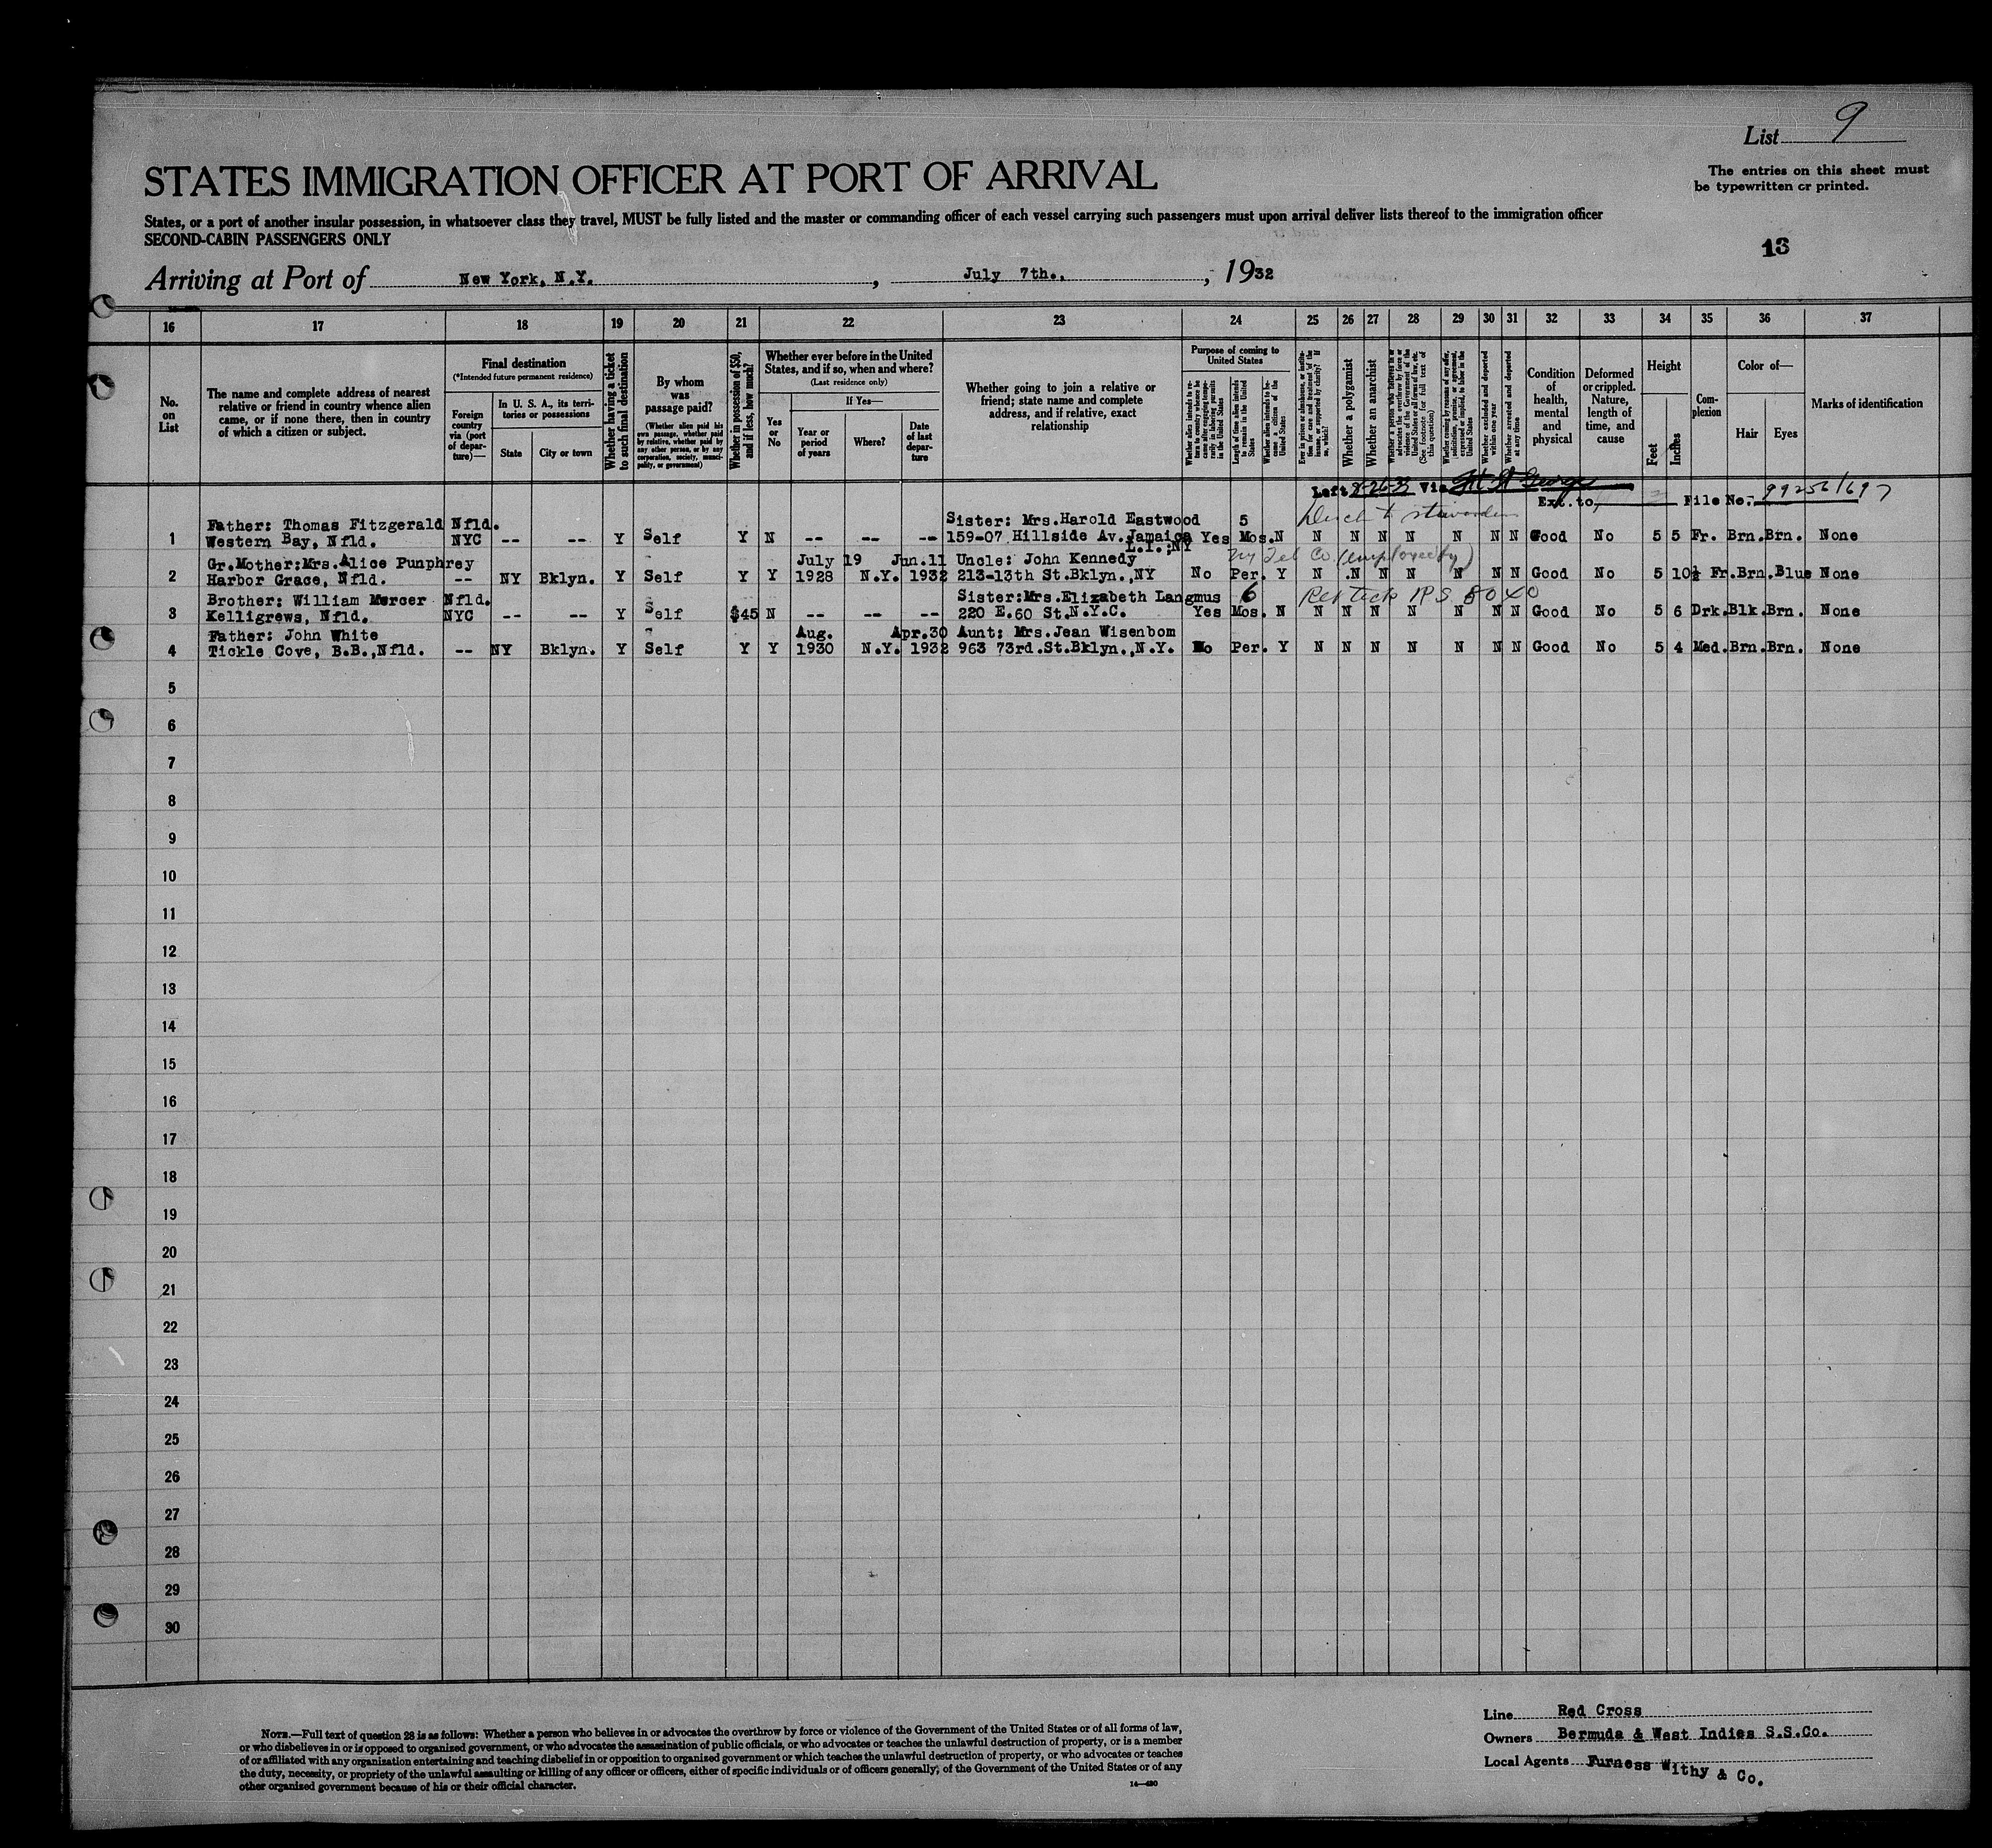 List 9
The entries on this sheet must
be typewritten or printed.
STATES IMMIGRATION OFFICER AT PORT OF ARRIVAL
States, or a port of another insular possession, in whatsoever class they travel, MUST be fully listed and the master or commanding officer of each vessel carrying such passengers must upon arrival deliver lists thereof to the immigration officer
SECOND-CABIN PASSENGERS ONLY
13
Arriving at Port of New York, N.Y., July 7th., 1932
16 17 18 19 20 21 22 23 24 25 26 27 28 29 30 31 32 33 34 35 36 37
No. on List
The name and complete address of nearest relative or friend in country whence alien came, or if none there, then in country of which a citizen or subject.
Final destination
(*Intended future permanent residence)
Foreign country via (port of departure)—
In U. S. A., its territories or possessions
State
City or town
Whether having a ticket to such final destination
By whom was passage paid?
(Whether alien paid his own passage, whether paid by relative, whether paid by any other person, or by any corporation, society, municipality, or government)
Whether in possession of $50, and if less, how much?
Whether ever before in the United States, and if so, when and where?
(Last residence only)
Yes or No
If Yes—
Year or period of years
Where?
Date of last departure
Whether going to join a relative or friend; state name and complete address, and if relative, exact relationship
Purpose of coming to United States
Whether alien intends to return to country whence he came after engaging temporarily in laboring pursuits in the United States
Length of time alien intends to remain in the United States
Whether alien intends to become a citizen of the United States
Ever in prison or almshouse, or institution for care and treatment of the insane, or supported by charity? If so, which?
Whether a polygamist
Whether an anarchist
(See footnote for full text of this question)
Whether coming by reason of any offer, solicitation, promise, or agreement, expressed or implied, to labor in the United States
Whether excluded and deported within one year
Whether arrested and deported at any time
Condition of health, mental and physical
Deformed or crippled. Nature, length of time, and cause
Height
Feet
Inches
Complexion
Color of—
Hair
Eyes
Marks of identification
Left 8-26-32 Via Ft St George
Ext. to, File No. 99256/697
Father: Thomas Fitzgerald Nfld. Sister: Mrs.Harold Eastwood 5
1 Western Bay, Nfld. NYC -- -- Y Self Y N -- -- -- 159-07 Hillside Av.Jamaica Yes Mos.N N N N N N N N Good No 5 5 Fr. Brn.Brn. None
L.I.,NY
Gr.Mother:Mrs.Alice Punphrey July 19 Jun.11 Uncle: John Kennedy NY Tel Co (employee
2 Harbor Grace, Nfld. -- NY Bklyn. Y Self Y Y 1928 N.Y. 1932 213-13th St.Bklyn.,NY No Per. Y N N N N N N N Good No 5 10½ Fr.Brn.Blue None
Brother: William Mercer Nfld. Sister:Mrs.Elizabeth Langmus 6
3 Kelligrews, Nfld. NYC -- -- Y Self $45 N -- -- -- 220 E.60 St.N.Y.C. Yes Mos. N N N N N N N N Good No 5 6 Drk.Blk.Brn. None
Father: John White Aug. Apr.30 Aunt: Mrs.Jean Wisenbom
4 Tickle Cove, B.B.,Nfld. -- NY Bklyn. Y Self Y Y 1930 N.Y. 1932 963 73rd.St.Bklyn.,N.Y. No Per. Y N N N N N N N Good No 5 4 Med.Brn.Brn. None
5
6
7
8
9
10
11
12
13
14
15
16
17
18
19
20
21
22
23
24
25
26
27
28
29
30
NOTE.—Full text of question 28 is as follows: Whether a person who believes in or advocates the overthrow by force or violence of the Government of the United States or of all forms of law,
or who disbelieves in or is opposed to organized government, or who advocates the assassination of public officials, or who advocates or teaches the unlawful destruction of property, or is a member
of or affiliated with any organization entertaining and teaching disbelief in or opposition to organized government or which teaches the unlawful destruction of property, or who advocates or teaches
the duty, necessity, or propriety of the unlawful assaulting or killing of any officer or officers, either of specific individuals or of officers generally, of the Government of the United States or of any
other organized government because of his or their official character.
14—480
Line Red Cross
Owners Bermuda & West Indies S.S.Co.
Local Agents Furness Withy & Co.